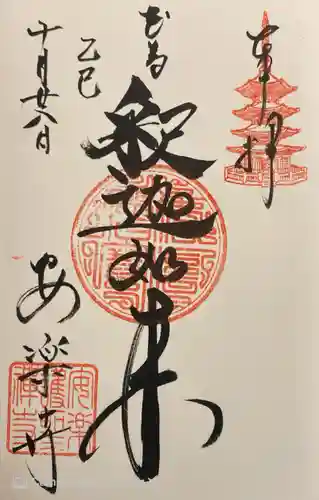 奉拝
釈迦如来
乙巳
十月廿八日
安楽寺